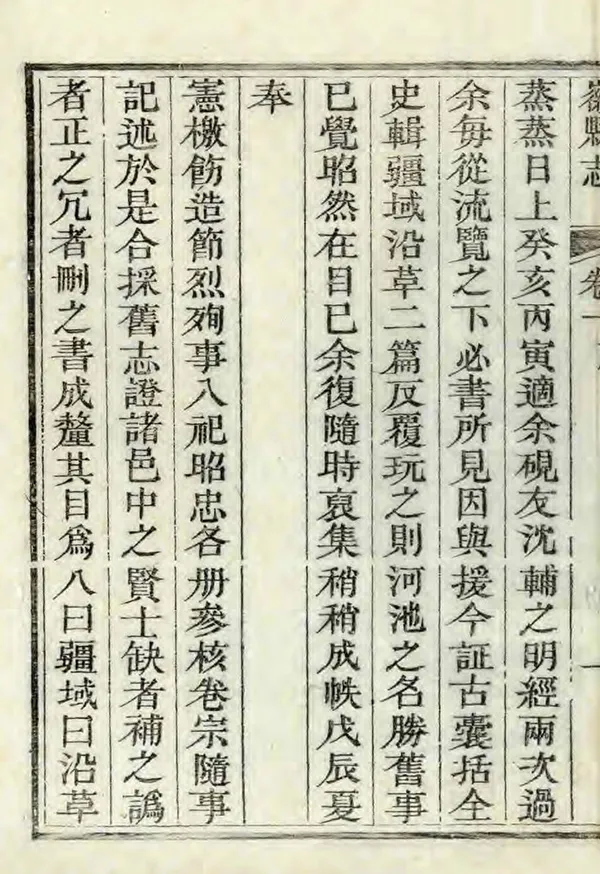 縣志 卷一
蒸蒸日上癸亥丙寅適余硯友沈輔之明經兩次過
余每從流覽之下必書所見因與援今証古囊括全
史輯疆域沿革二篇反覆玩之則河池之名勝舊事
已覺昭然在目已余復隨時裒集稍稍成帙戊辰夏
奉
憲檄飭造節烈殉事入祀昭忠各册參核卷宗隨事
記述於是合採舊志證諸邑中之賢士缺者補之譌
者正之冗者刪之書成釐其目為八曰疆域曰沿革